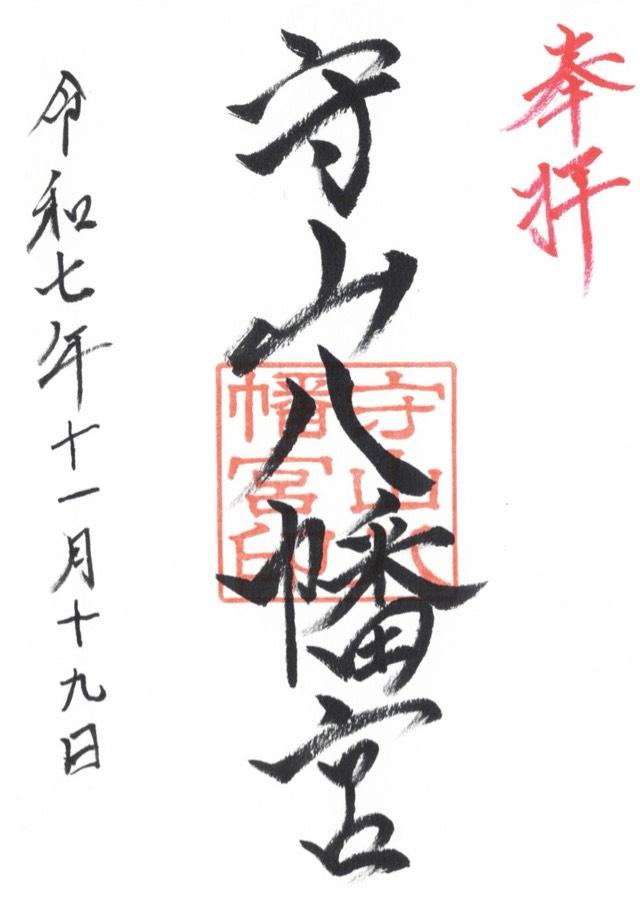 奉拝
守山八幡宮
守山八
幡宮印
令和七年十一月十九日